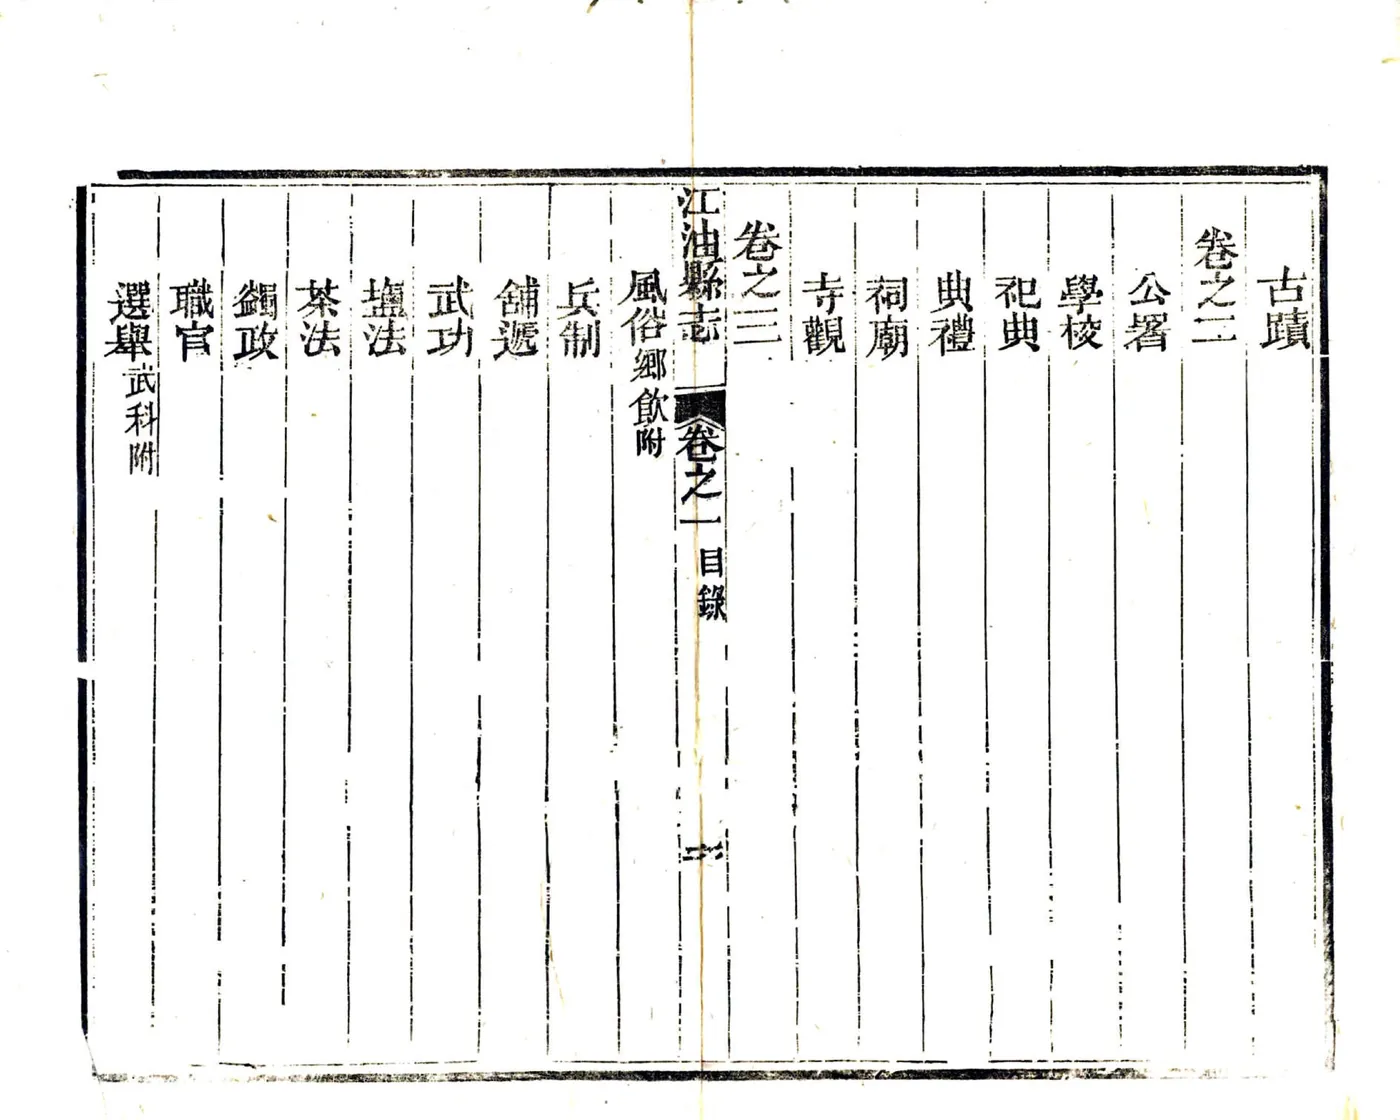 古蹟
卷之二
公署
學校
祀典
典禮
祠廟
寺觀
卷之三
江油縣志 卷之一 目錄 二
風俗鄉飲附
兵制
舖遞
武功
鹽法
茶法
蠲政
職官
選舉武科附